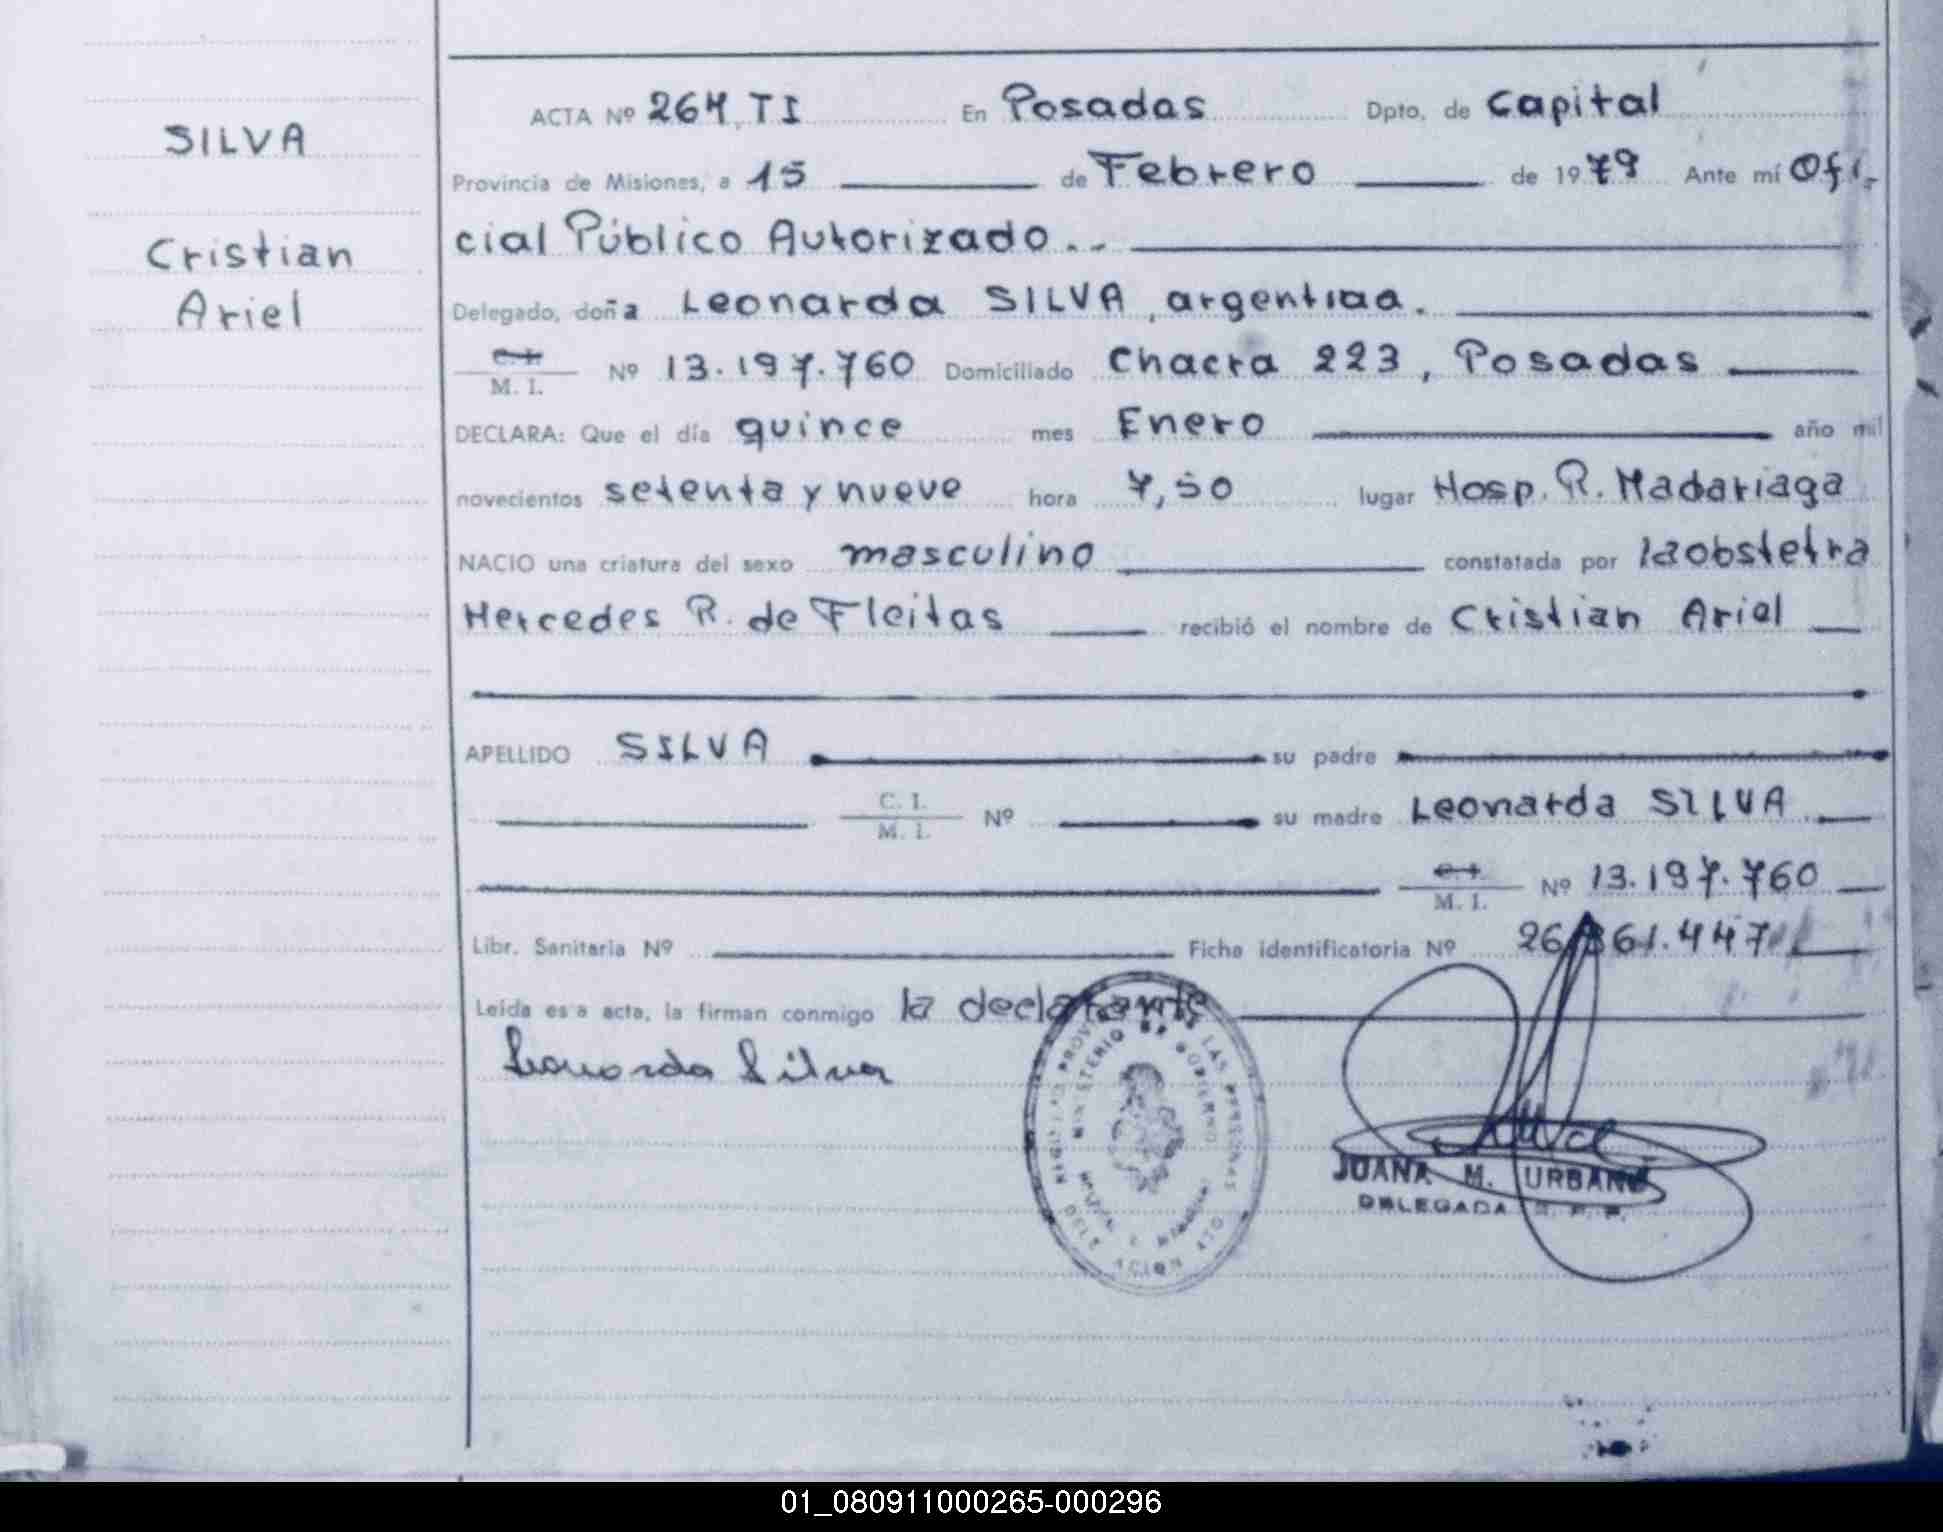 SILVA
Cristian
Ariel
ACTA Nº 264, TI En Posadas Dpto. de Capital
Provincia de Misiones, a 15 de Febrero de 1979 Ante mí Ofi-
cial Público Autorizado..
Delegado, doña Leonarda SILVA, argentina.
M. I. Nº 13.197.760 Domiciliado Chacra 223, Posadas
DECLARA: Que el día quince mes Enero año mil
novecientos setenta y nueve hora 7,50 lugar Hosp. R. Madariaga
NACIO una criatura del sexo masculino constatada por laobstetra
Mercedes R. de Fleitas recibió el nombre de Cristian Ariel
APELLIDO SILVA su padre
C. I.
M. I. Nº su madre Leonarda SILVA
M. I. Nº 13.197.760
Libr. Sanitaria Nº Ficha identificatoria Nº
Leída esa acta, la firman conmigo la declarante
Leonarda Silva
MINISTERIO DE GOBIERNO
JUANA M. URBANO
DELEGADA
01_080911000265-000296